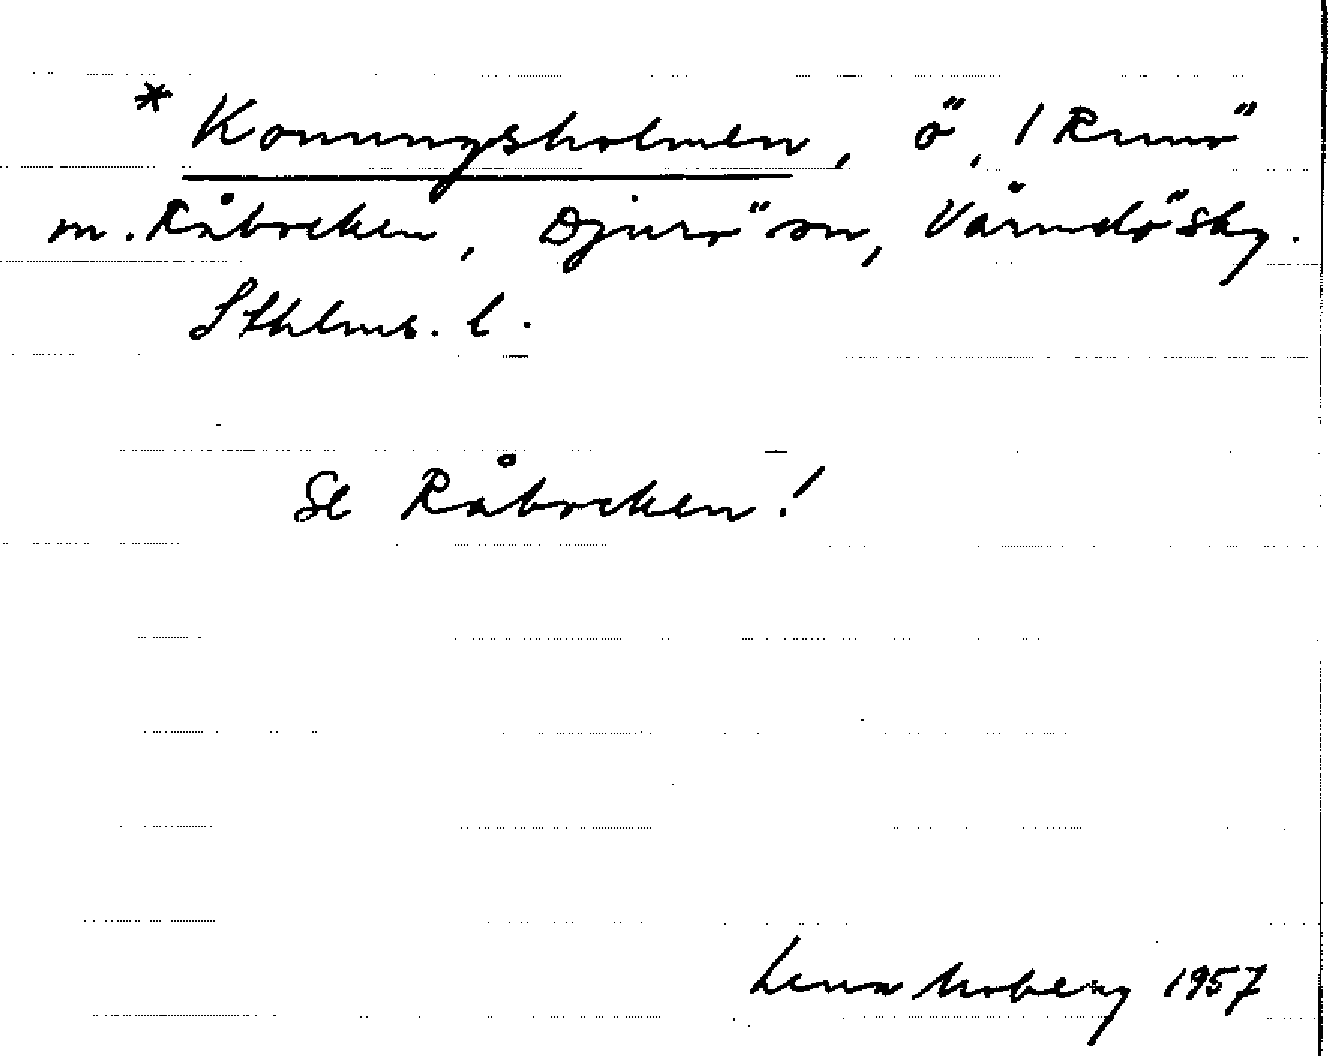 * Konungsholmen, ö, 1 Runö
m. Råbocken, Djurö sn, Värmdö skg.
Sthlms. l.
Se Råbocken!
Lena Moberg 1957